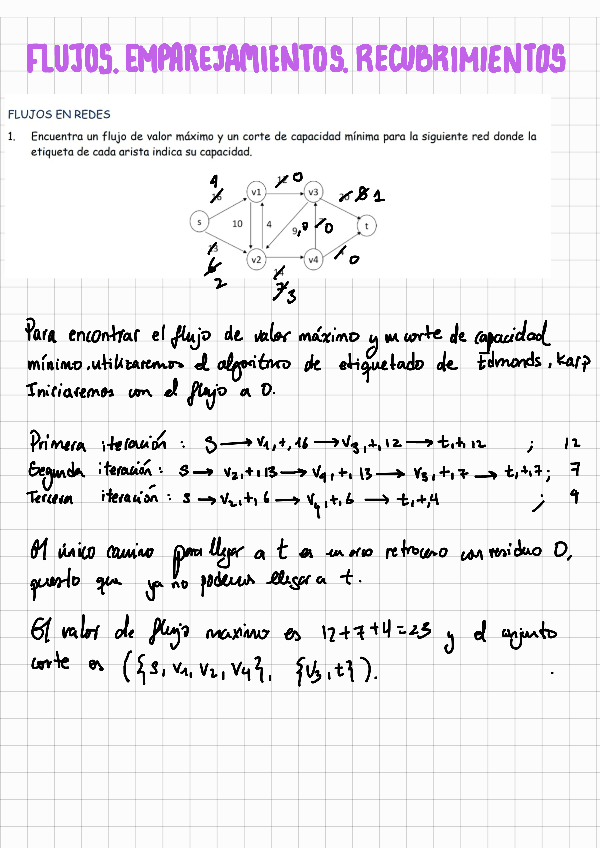 FLUJOS. EMPAREJAMIENTOS. RECUBRIMIENTOS
FLUJOS EN REDES
1. Encuentra un flujo de valor máximo y un corte de capacidad mínima para la siguiente red donde la
etiqueta de cada arista indica su capacidad.
4 0
v1 v3 1
s 10 4 9 0 t
v2 v4 0
2
3
Para encontrar el flujo de valor máximo y un corte de capacidad
mínimo, utilizaremos el algoritmo de etiquetado de Edmonds, Karp
Iniciaremos con el flujo a 0.
Primera iteración : S → V1,+,16 → V3,+,12 → t,+,12 ; 12
Segunda iteración : S → V2,+,13 → V4,+,13 → V3,+,7 → t,+,7 ; 7
Tercera iteración : S → V2,+,6 → V4,+,6 → t,+,4 ; 4
El único camino para llegar a t es un arco retroceso con residuo 0,
puesto que ya no podemos llegar a t.
El valor de flujo maximo es 12+7+4=23 y el conjunto
corte es ({S, V1, V2, V4}, {V3, t}).